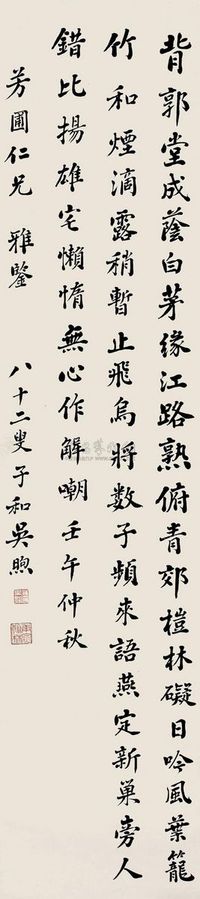 背郭堂成蔭白茅緣江路熟俯青郊榿林礙日吟風葉籠
竹和煙滴露稍暫止飛烏將数子頻來語燕定新巢旁人
錯比揚雄宅懶惰無心作解嘲 壬午仲秋
芳圃仁兄 雅鑒 八十二叟子和吳煦